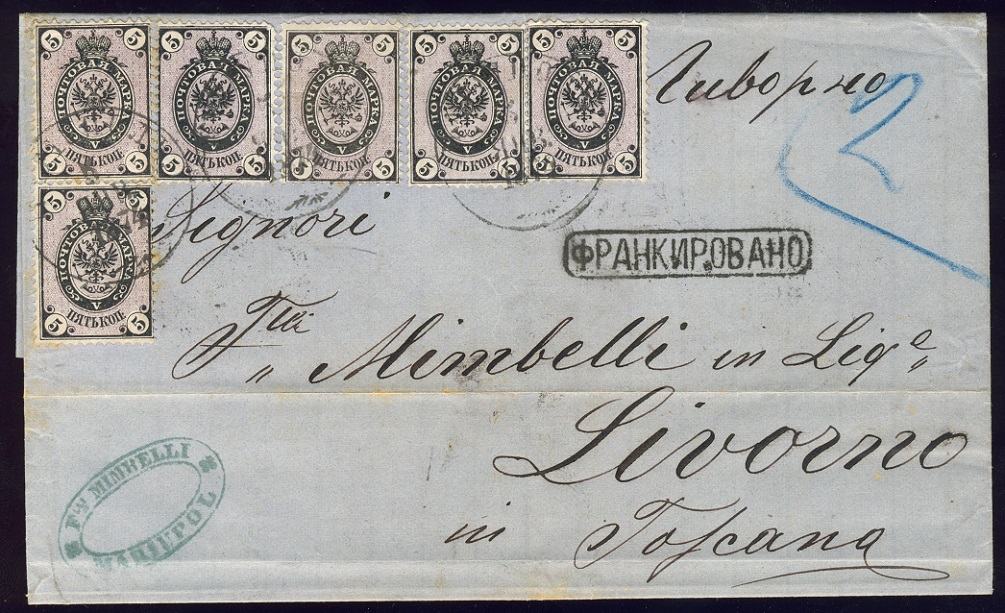 5 5 5 5 5 5 5 5 5 5
ПОЧТОВАЯ МАРКА ПОЧТОВАЯ МАРКА ПОЧТОВАЯ МАРКА ПОЧТОВАЯ МАРКА ПОЧТОВАЯ МАРКА
V V V V V
ПЯТЬ КОП. ПЯТЬ КОП. ПЯТЬ КОП. ПЯТЬ КОП. ПЯТЬ КОП.
5 5 5 5 5 5 5 5 5 5
Ливорно
5 5
ПОЧТОВАЯ МАРКА
V
ПЯТЬ КОП.
5 5
Signori
ФРАНКИРОВАНО
Flli
„ Mimbelli in Liqe „
Livorno
in Toscana
Flli MIMBELLI
MARIUPOL